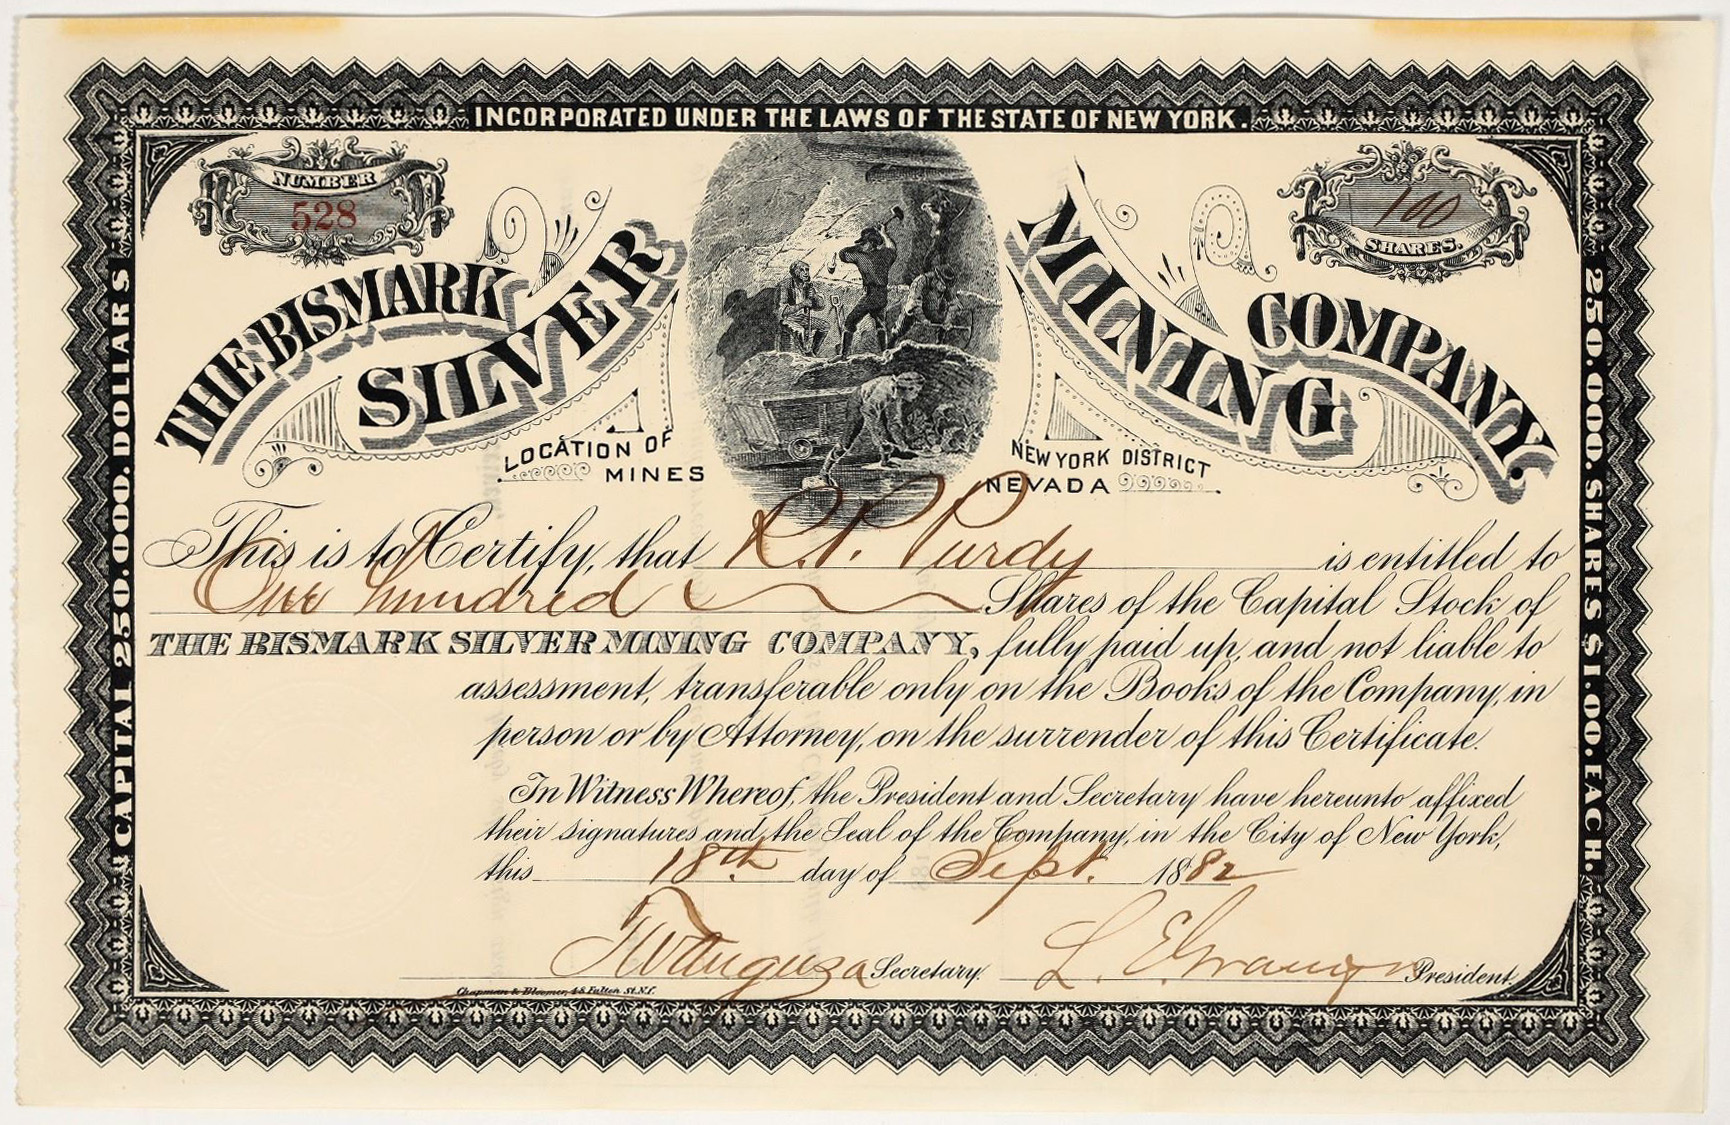 INCORPORATED UNDER THE LAWS OF THE STATE OF NEW YORK.
NUMBER
528
100
SHARES.
THE BISMARK
SILVER
MINING
COMPANY.
LOCATION OF
MINES
NEW YORK DISTRICT
NEVADA
CAPITAL 250.000. DOLLARS
250.000. SHARES $1.00. EACH.
This is to Certify, that R. P. Purdy is entitled to
One hundred Shares of the Capital Stock of
THE BISMARK SILVER MINING COMPANY, fully paid up, and not liable to
assessment, transferable only on the Books of the Company, in
person or by Attorney, on the surrender of this Certificate.
In Witness Whereof, the President and Secretary have hereunto affixed
their signatures and the Seal of the Company, in the City of New York,
this 18th day of Sept. 1882
Secretary.
L. President.
Chapman & Bloomer, 48 Fulton St. N.Y.